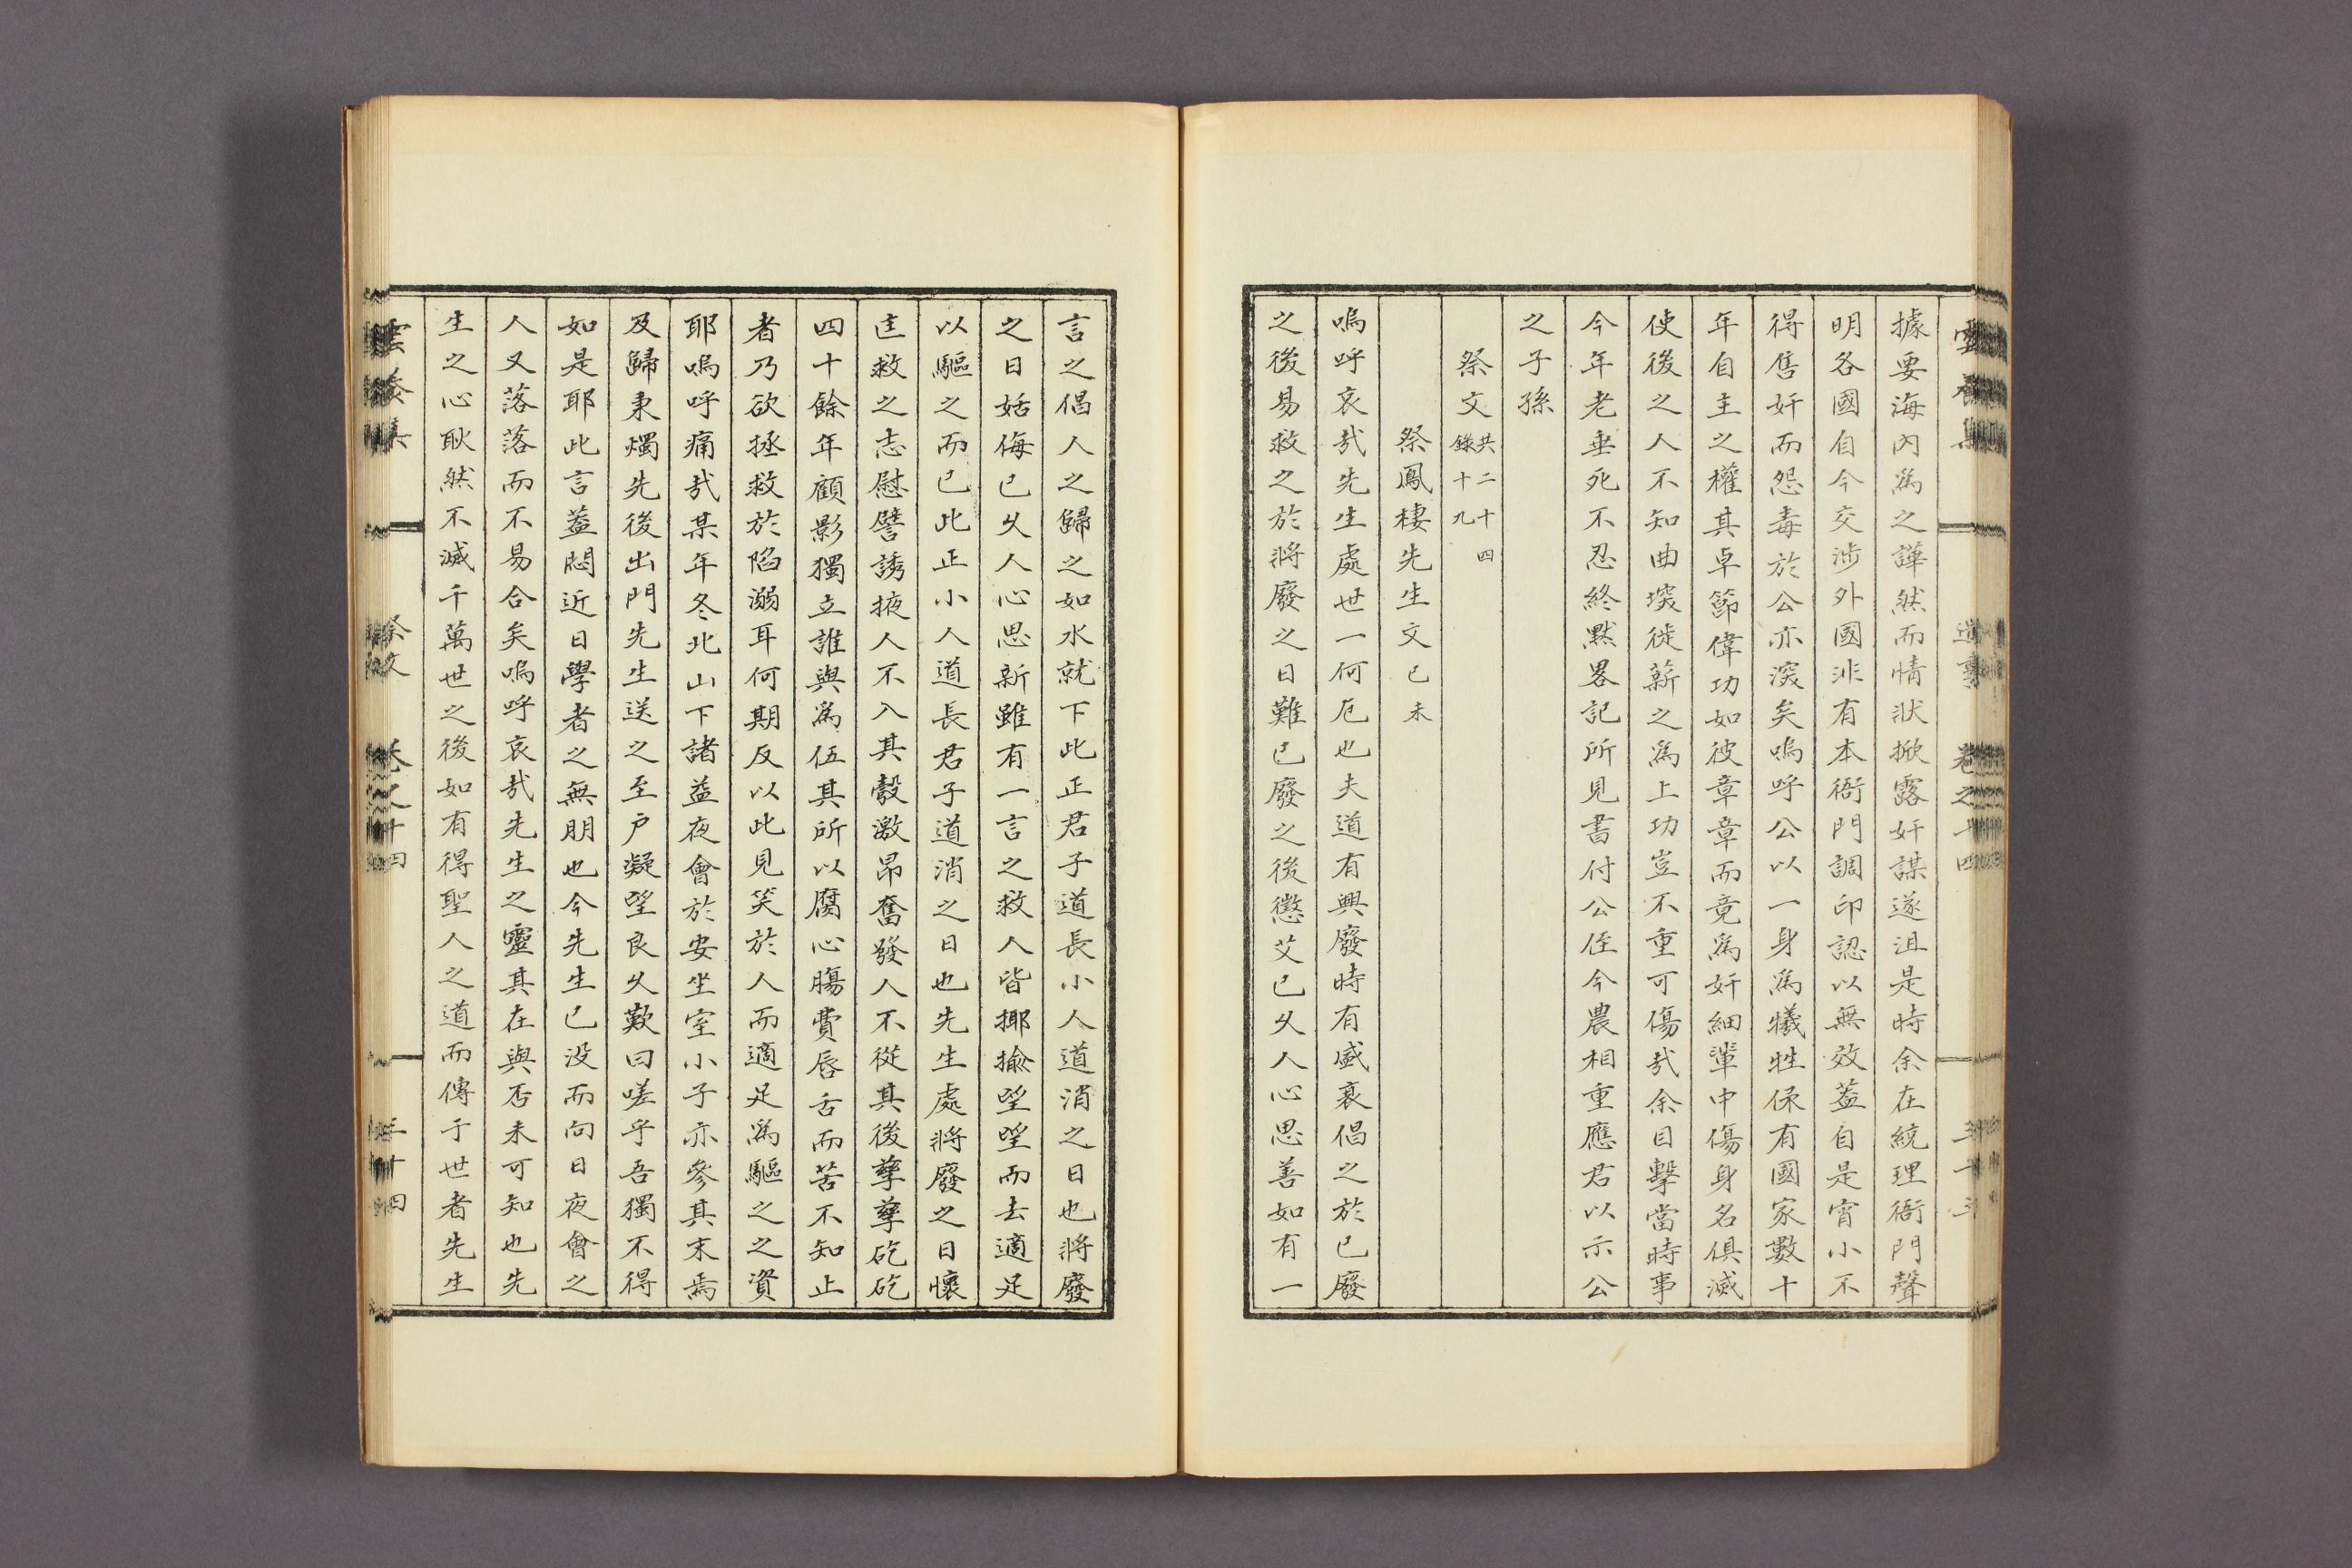 雲養集　遺事　卷之十四　三十三
據要海內爲之譁然而情狀掀露奸謀遂沮是時余在統理衙門聲
明各國自今交涉外國非有本衙門調印認以無效蓋自是宵小不
得售奸而怨毒於公亦深矣嗚呼公以一身爲犧牲保有國家數十
年自主之權其卓節偉功如彼章章而竟爲奸細輩中傷身名俱滅
使後之人不知曲堗徙薪之爲上功豈不重可傷哉余目擊當時事
今年老垂死不忍終默畧記所見書付公侄今農相重應君以示公
之子孫
祭文 共二十四 錄十九
祭鳳棲先生文 己未
嗚呼哀哉先生處世一何厄也夫道有興廢時有盛衰倡之於已廢
之後易救之於將廢之日難已廢之後懲艾已久人心思善如有一
言之倡人之歸之如水就下此正君子道長小人道消之日也將廢
之日姤侮已久人心思新雖有一言之救人皆揶揄望望而去適足
以驅之而已此正小人道長君子道消之日也先生處將廢之日懷
匡救之志慰譬誘掖人不入其彀激昂奮發人不從其後孳孳矻矻
四十餘年顧影獨立誰與爲伍其所以腐心膓費唇舌而苦不知止
者乃欲拯救於陷溺耳何期反以此見笑於人而適足爲驅之之資
耶嗚呼痛哉某年冬北山下諸益夜會於安坐室小子亦參其末焉
及歸秉燭先後出門先生送之至戶凝望良久歎曰嗟乎吾獨不得
如是耶此言蓋悶近日學者之無朋也今先生已沒而向日夜會之
人又落落而不易合矣嗚呼哀哉先生之靈其在與否未可知也先
生之心耿然不滅千萬世之後如有得聖人之道而傳于世者先生
雲養集　祭文　卷之十四　三十四